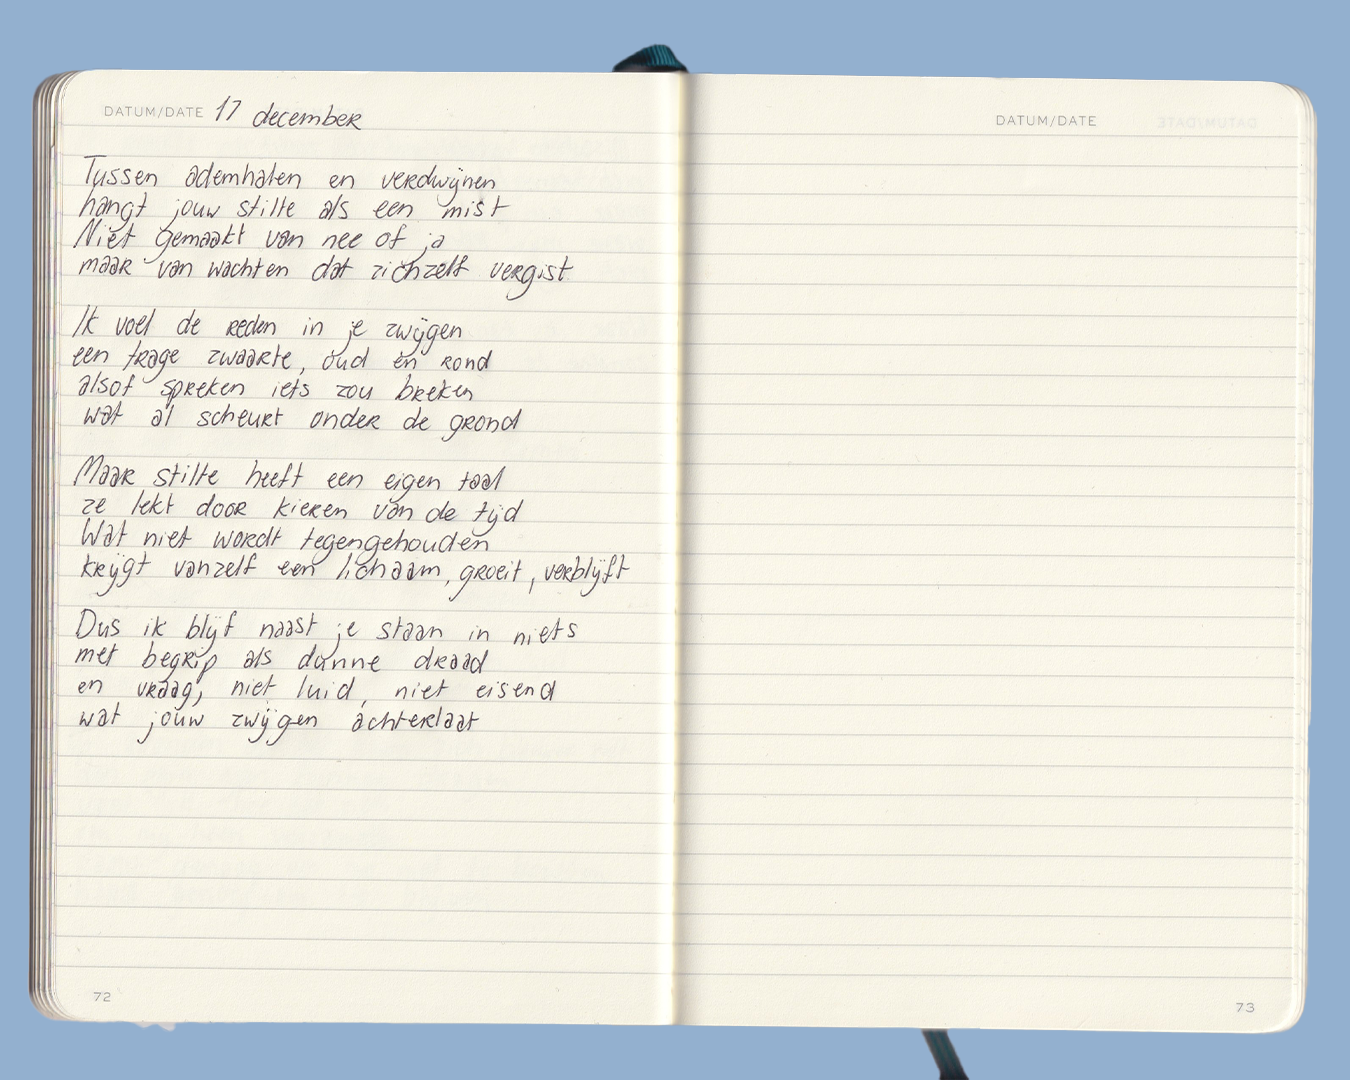 DATUM/DATE 17 december
Tussen ademhalen en verdwijnen
hangt jouw stilte als een mist
Niet gemaakt van nee of ja
maar van wachten dat zichzelf vergist
Ik voel de reden in je zwijgen
een trage zwaarte, oud en rond
alsof spreken iets zou breken
wat al scheurt onder de grond
Maar stilte heeft een eigen taal
ze lekt door kieren van de tijd
Wat niet wordt tegengehouden
krijgt vanzelf een lichaam, groeit, verblijft
Dus ik blijf naast je staan in niets
met begrip als dunne draad
en vraag, niet luid, niet eisend
wat jouw zwijgen achterlaat
72
DATUM/DATE
73